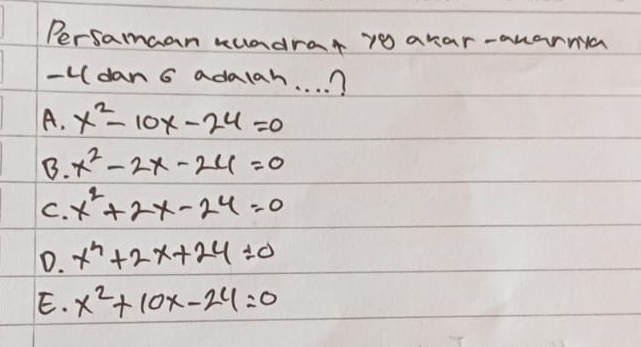 Persamaan kuadrat yg akar-akarnya
-4 dan 6 adalah....?
A. x² - 10x - 24 = 0
B. x² - 2x - 24 = 0
C. x² + 2x - 24 = 0
D. x² + 2x + 24 = 0
E. x² + 10x - 24 = 0